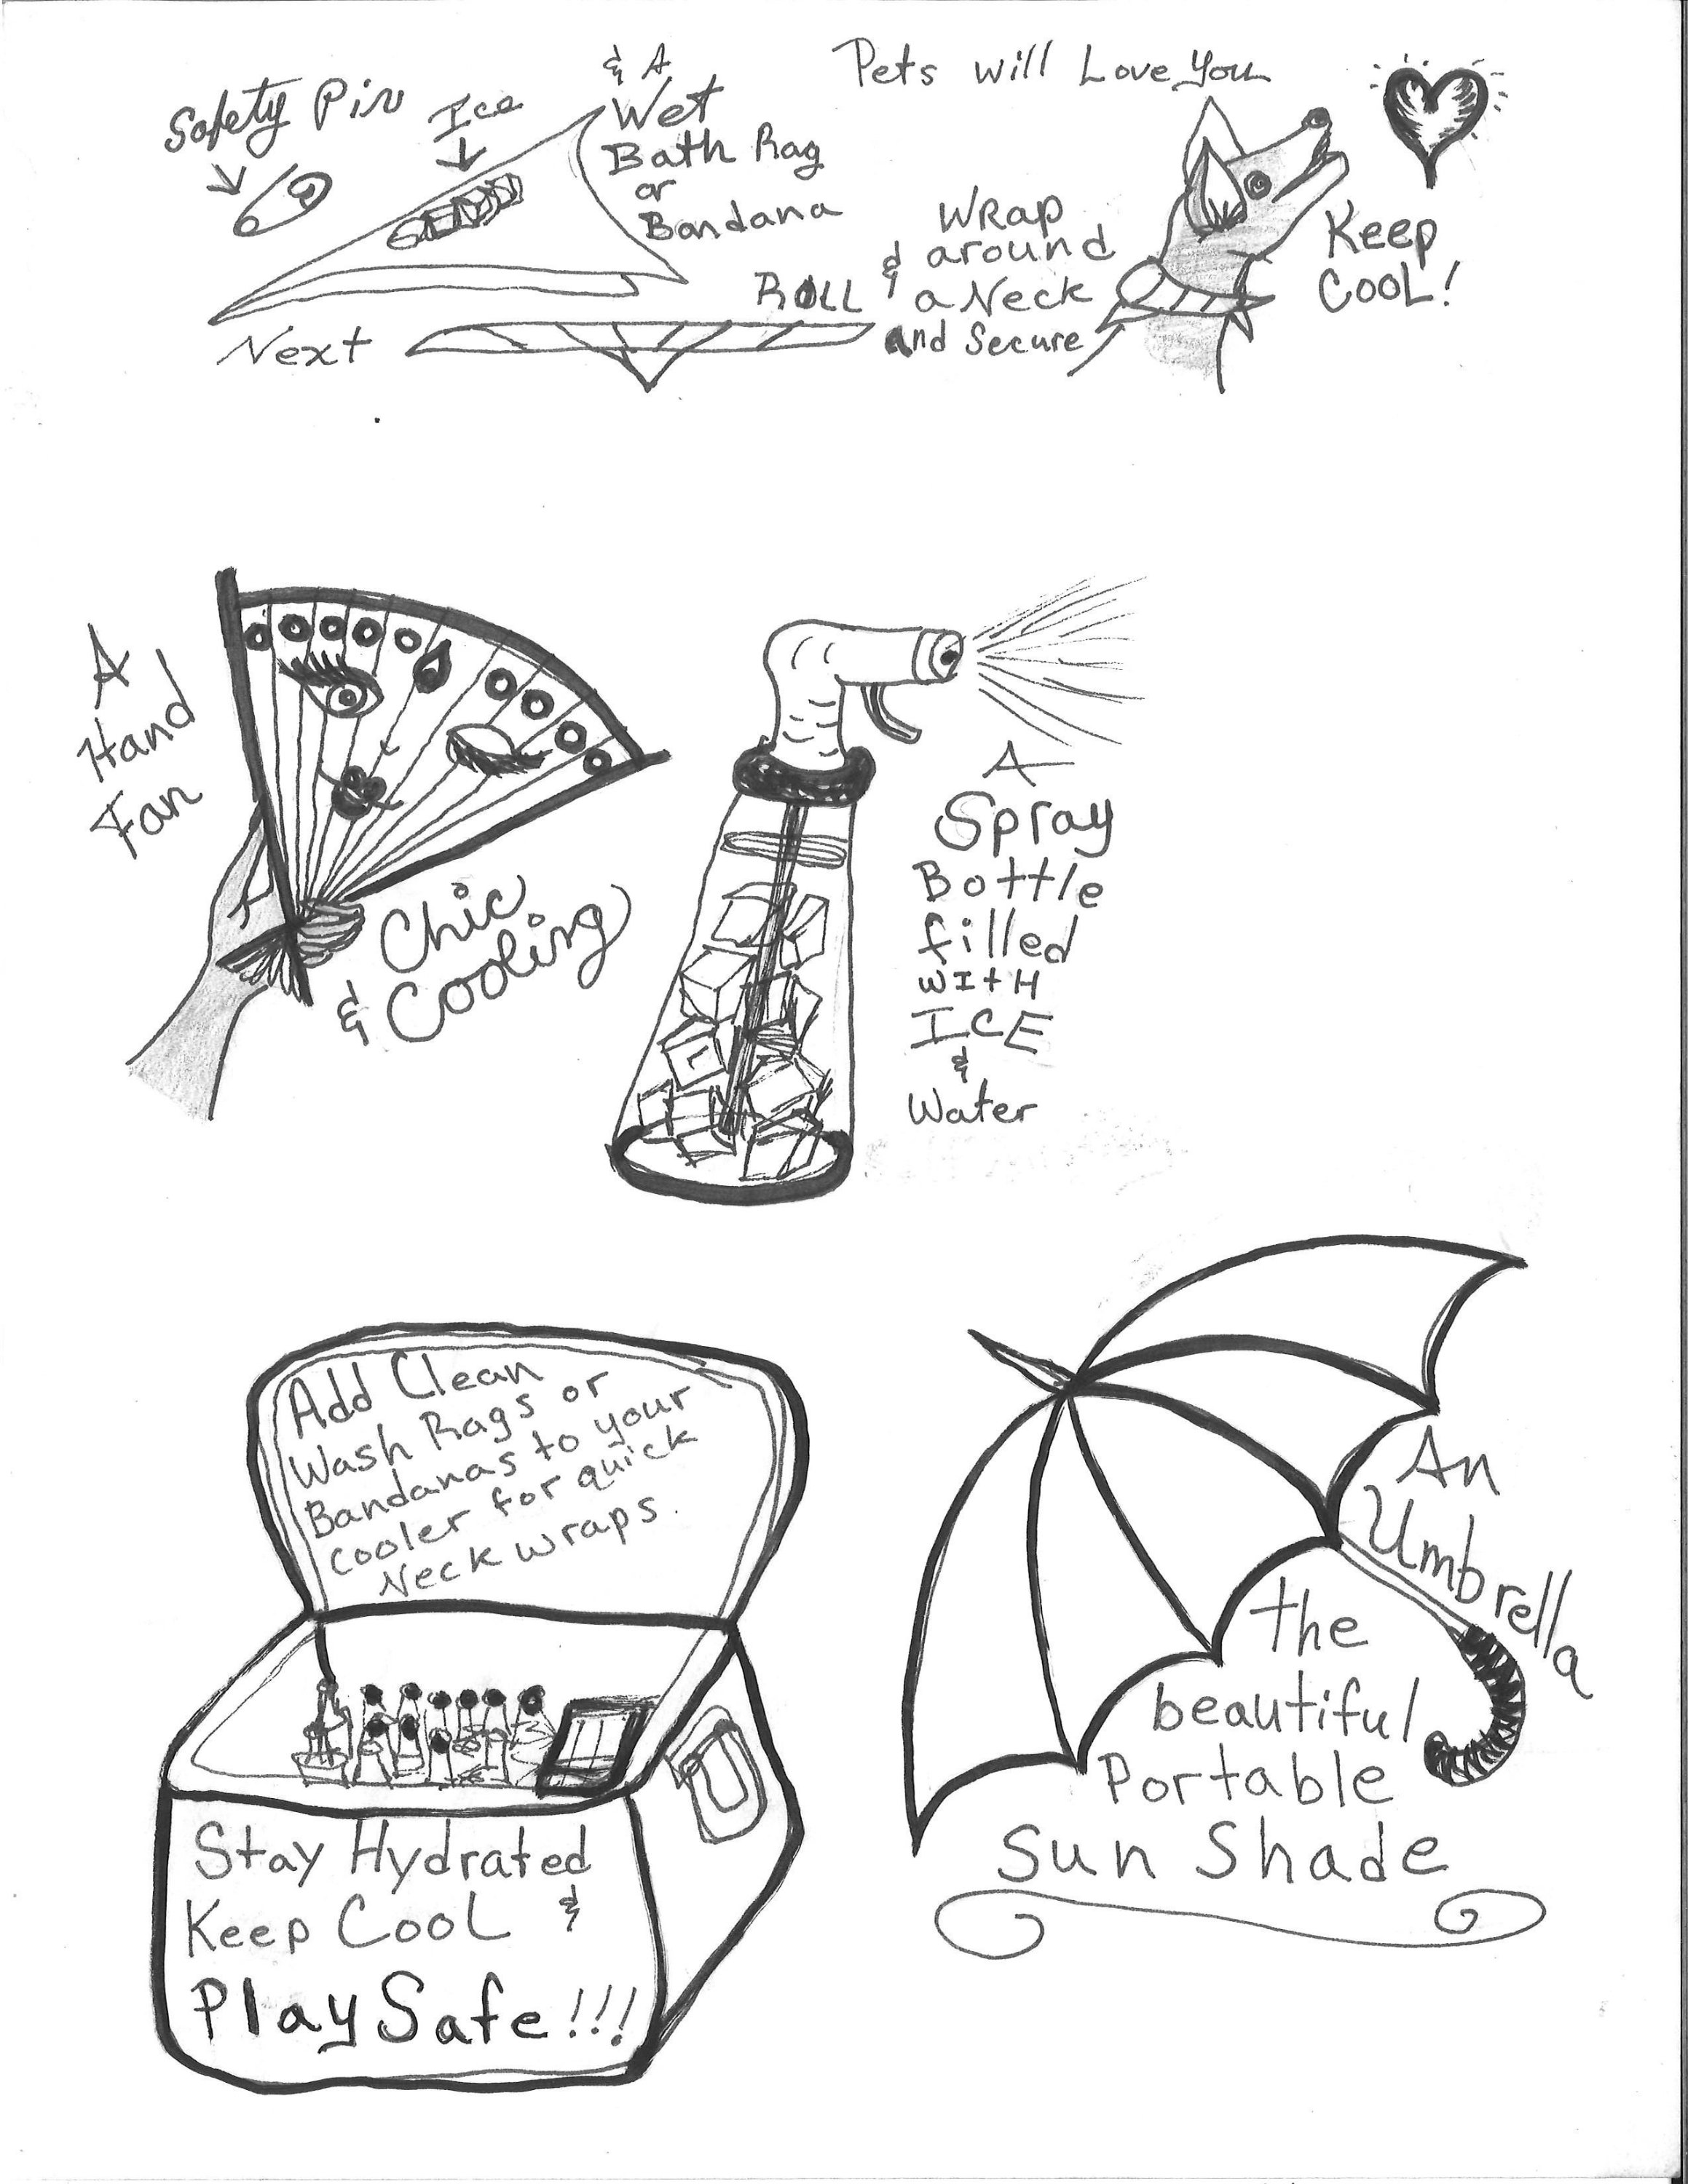 Safety Pin
Ice
& A
Wet
Bath Rag
or
Bandana
Next
ROLL
&
WRap
around
a Neck
and Secure
Pets will Love You
Keep
COOL!
A
Hand
Fan
Chic
& Cooling
A
Spray
Bottle
filled
WItH
ICE
&
Water
Add Clean
Wash Rags or
Bandanas to your
cooler for quick
Neck wraps.
Stay Hydrated
Keep Cool &
Play Safe!!!
An
Umbrella
the
beautiful
Portable
Sun Shade